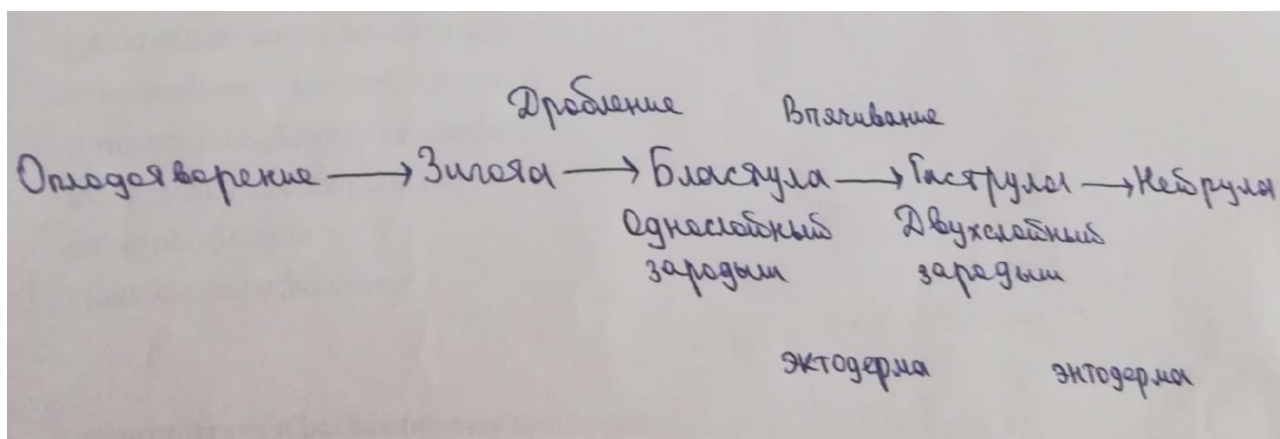 Дробление Впячивание
Оплодотворение → Зигота → Бластула → Гаструла → Нейрула
Однослойный Двухслойный
зародыш зародыш
эктодерма энтодерма